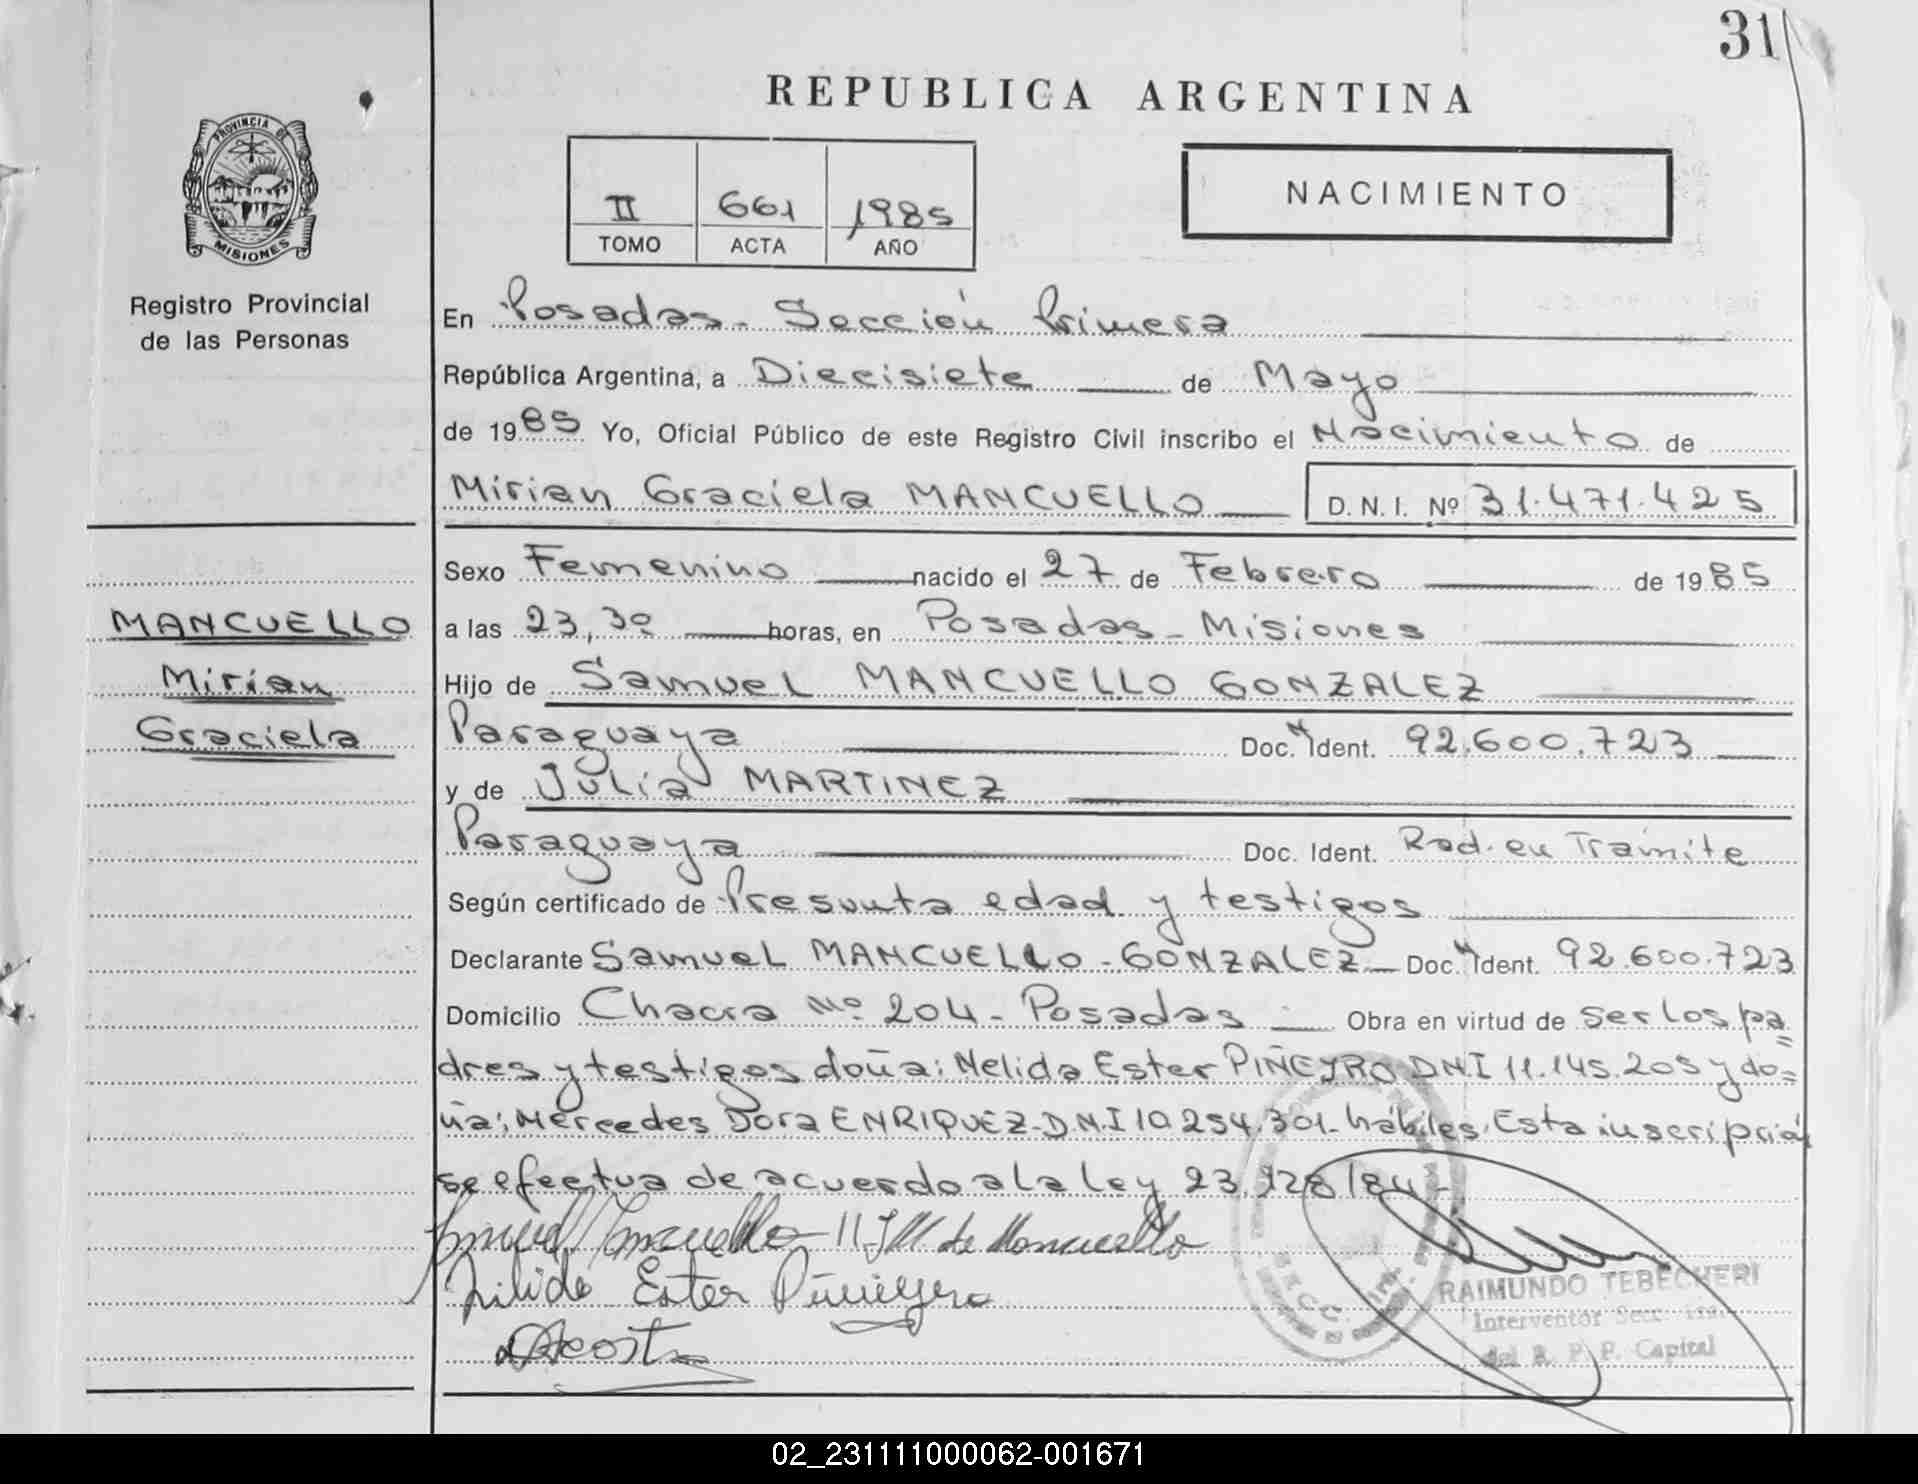 31
REPUBLICA ARGENTINA
PROVINCIA DE
MISIONES
Registro Provincial
de las Personas
II 661 1985
TOMO ACTA AÑO
NACIMIENTO
En Posadas - Sección Primera
República Argentina, a Diecisiete de Mayo
de 1985 Yo, Oficial Público de este Registro Civil inscribo el Nacimiento de
Mirian Graciela MANCUELLO D. N. I. Nº 31.471.425
Sexo Femenino nacido el 27 de Febrero de 1985
MANCUELLO
Mirian
Graciela
a las 23,30 horas, en Posadas - Misiones
Hijo de Samuel MANCUELLO GONZALEZ
Paraguaya Doc. N Ident. 92.600.723
y de Julia MARTINEZ
Paraguaya Doc. Ident. Rad. en Trámite
Según certificado de Presunta edad y testigos
Declarante Samuel MANCUELLO - GONZALEZ Doc. N Ident. 92.600.723
Domicilio Chacra Nº 204 - Posadas Obra en virtud de ser los pa=
dres y testigos doña: Nelida Ester PIÑEYRO DNI 11.145.205 y do=
ña: Mercedes Dora ENRIQUEZ - D.N.I 10.254.301 - hábiles. Esta inscripción
se efectua de acuerdo a la ley 23.128/84 -
Samuel Mancuello - J M de Mancuello
Ester
Acosta
SECC. 1RA.
RAIMUNDO TEBECHERI
Interventor Secc. 1ra.
del R. P. P. Capital
02_231111000062-001671